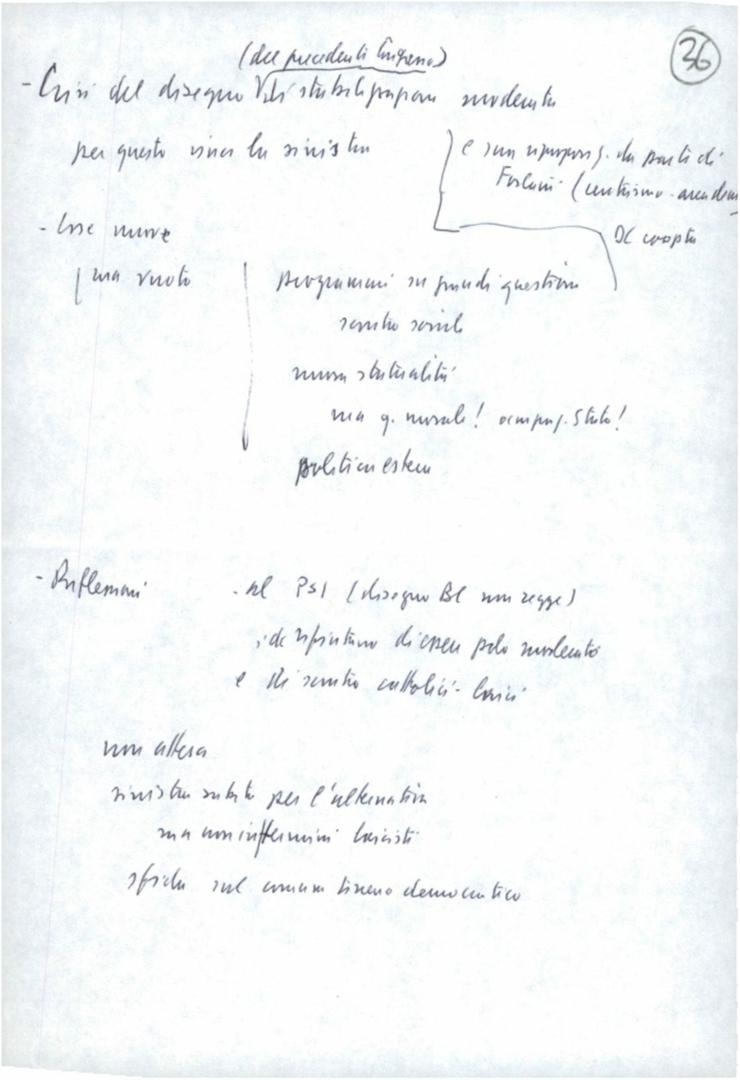 36
(del precedente Congresso)
- Crisi del disegno di stabilizzazione moderata
per questo vince la sinistra
e sua riproposiz. da parte di
Forlani (centrismo -
DC coopta
- Cose nuove
ma vuoto
programmi su grandi questioni
scontro sociale
nuova statualità
ma q. morale! occupaz. Stato!
politica estera
- Riflessioni
- sul PSI (disegno BC non regge)
; de rifiutano di essere polo moderato
e di scontro cattolici - laici
non attesa
sinistra subito per l'alternativa
ma non in termini laicisti
sfida sul comune terreno democratico